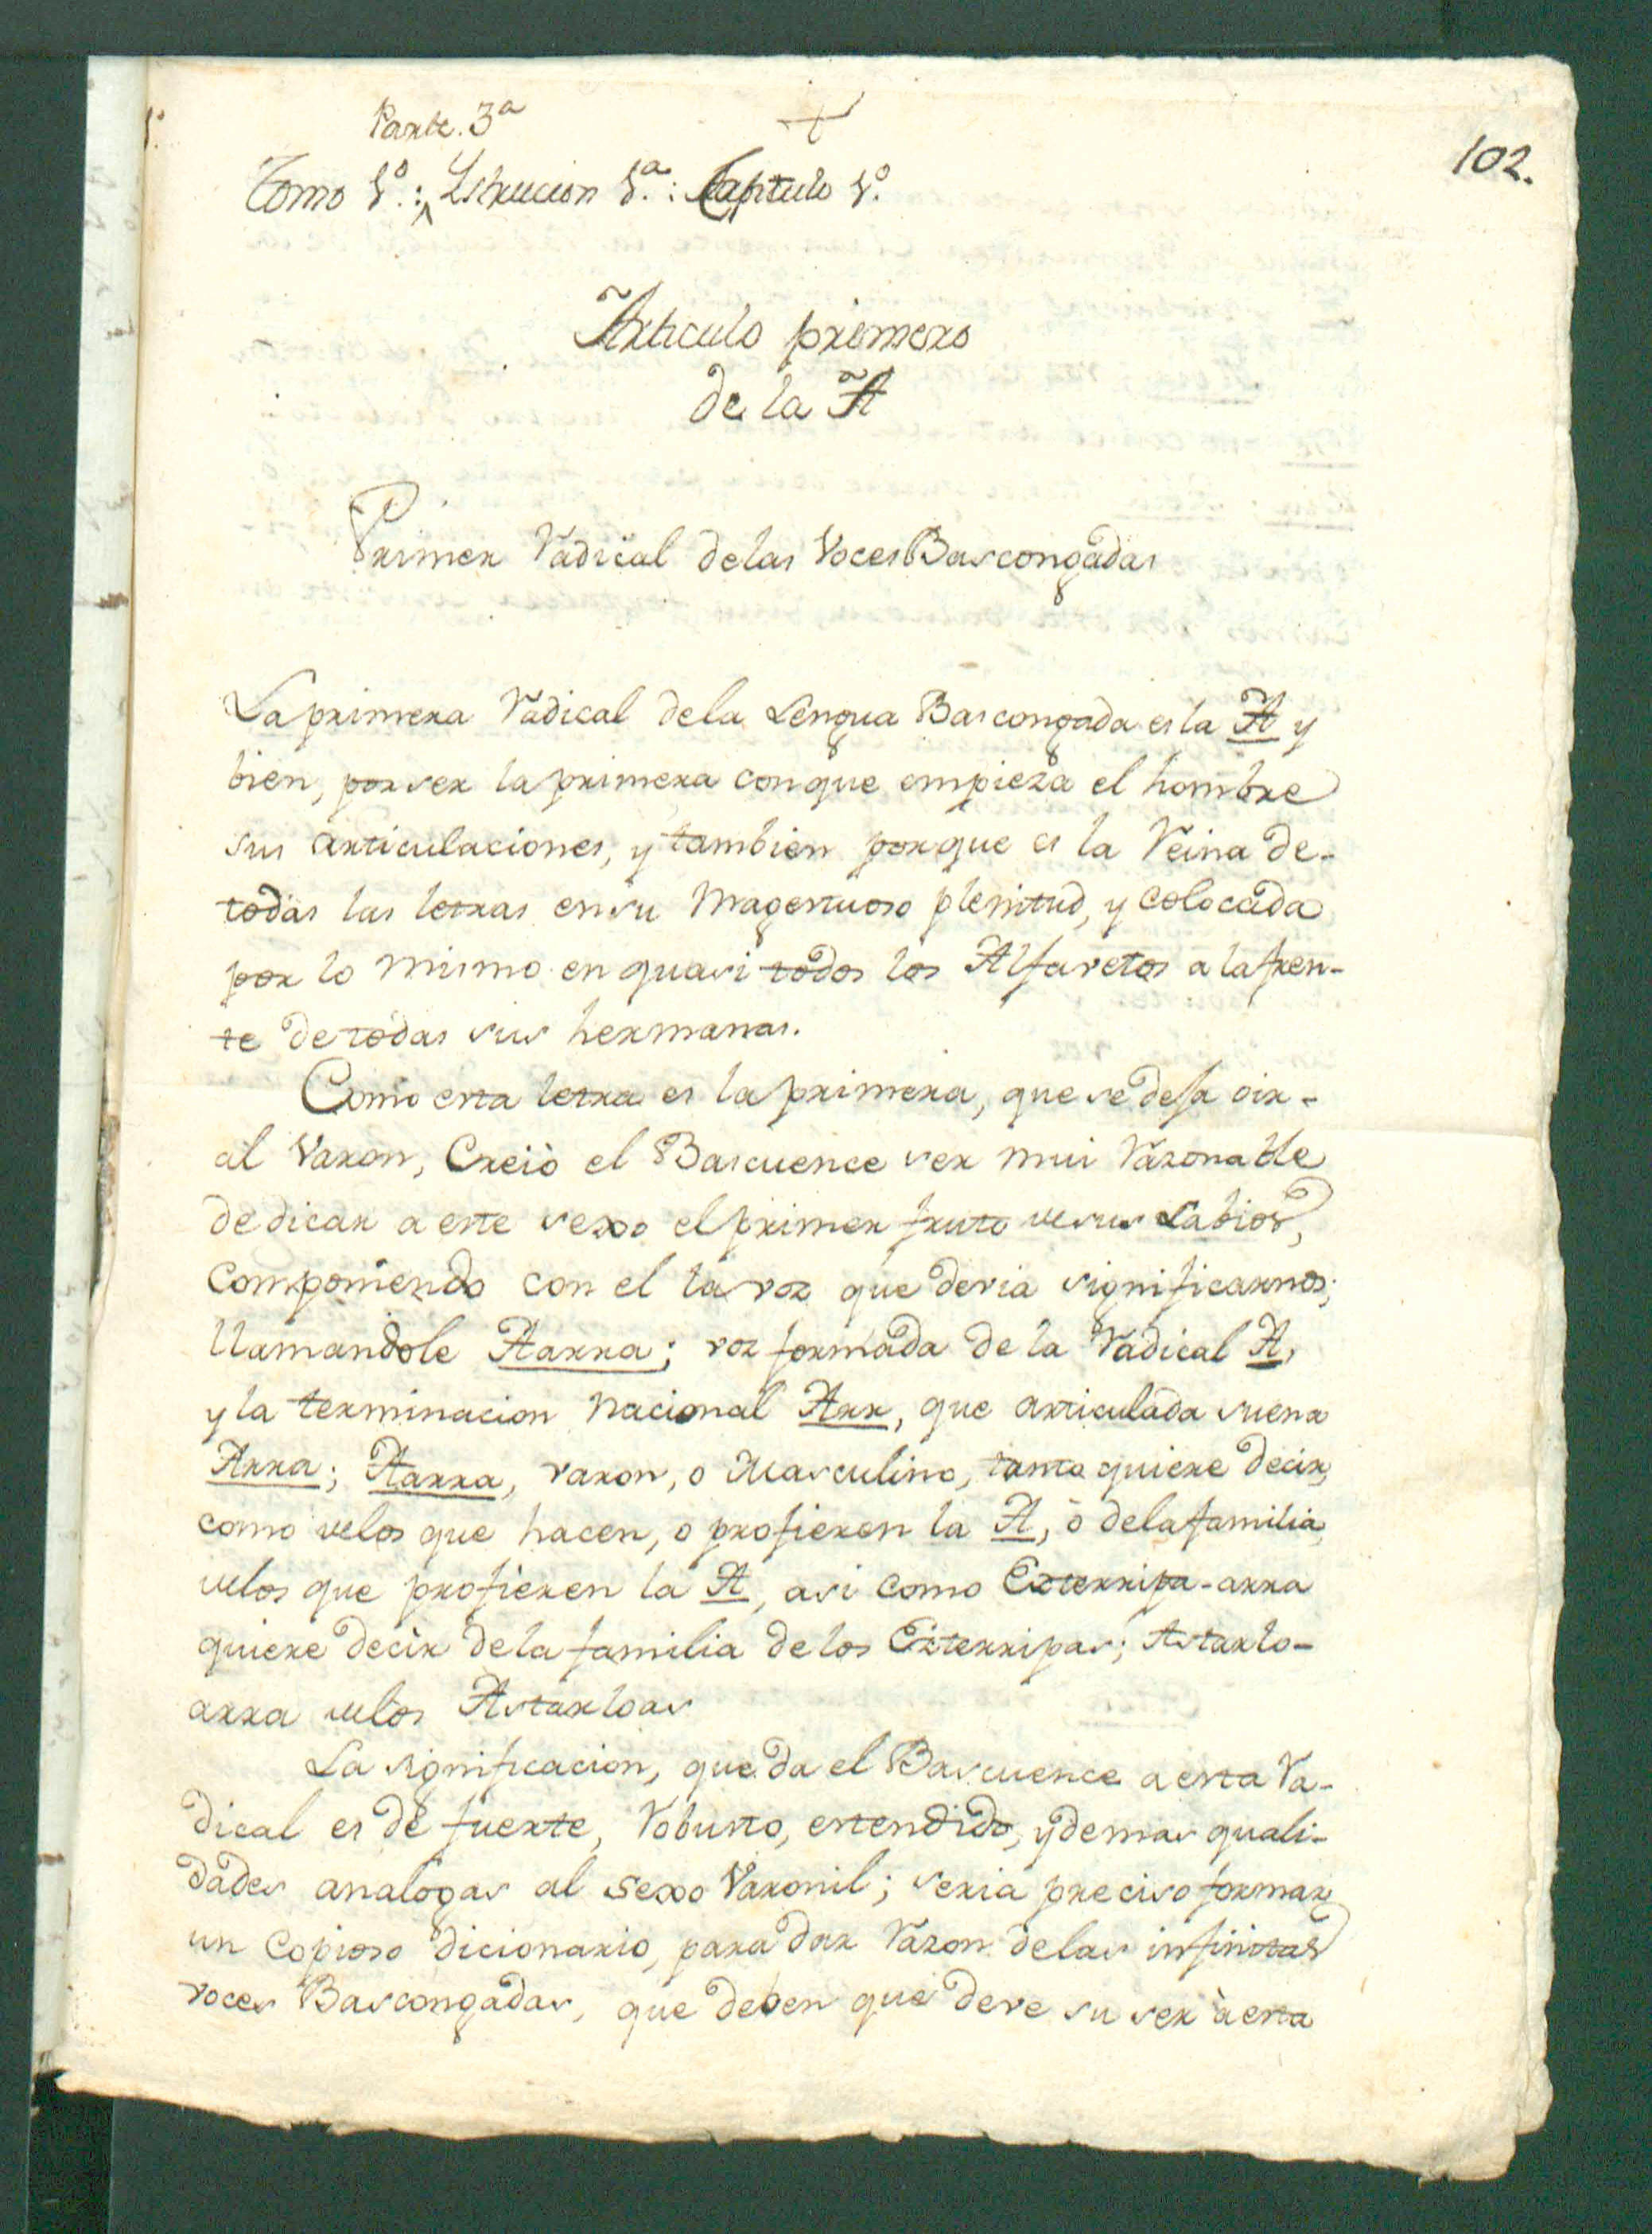 1º
Parte. 3ª
102.
Tomo 1º.: Istrucion 1ª.: Capitulo 1º.
Articulo primero
de la A
Primer Radical de las Voces Bascongadas
La primera Radical de la Lengua Bascongada es la A y
bien, por ser la primera con que empieza el hombre
sus articulaciones, y tambien porque es la Reina de-
todas las letras en su Magestuoso plenitud, y colocada
por lo mismo en quasi todos los Alfavetos a la fren-
te de todas sus hermanas.
Como esta letra es la primera, que se deja oir-
al Varon, Creiò el Bascuence ser mui Razonable
dedicar a este sexo el primer fruto de sus Labios,
componiendo con el la voz que devia significarnos;
llamandole Aarra; voz formada de la Radical A,
y la terminacion Nacional Arr, que articulada suena
Arra; Aarra, varon, o Masculino, tanto quiere decir,
como de los que hacen, o profieren la A, ò de la familia
de los que profieren la A, asi como Ezterripa-arra
quiere decir de la familia de los Ezterripas; Astarlo-
arra de los Astarloas
La significacion, que da el Bascuence a esta Ra-
dical es de fuerte, Robusto, estendido, y demas quali-
dades analogas al sexo Varonil; seria preciso formar
un Copioso dicionario, para dar Razon de las infinitas
voces Bascongadas, que deben que deve su ser à esta